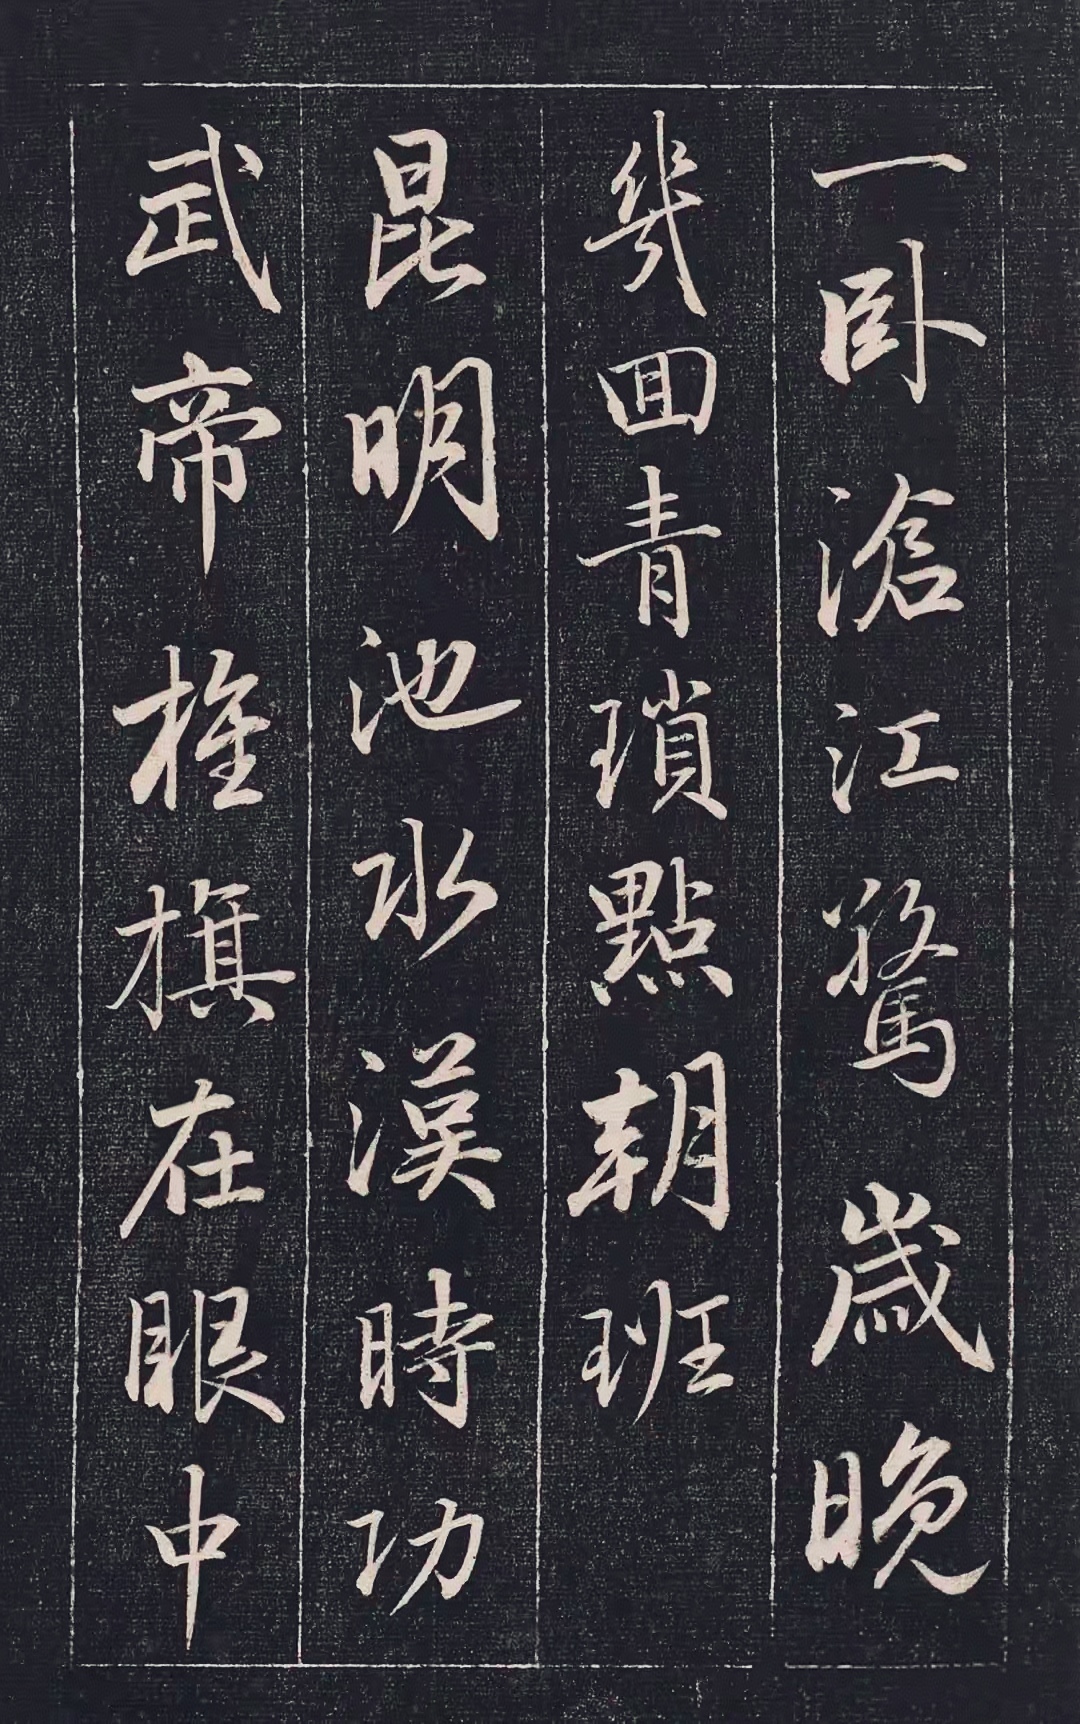 一卧滄江驚歲晚
幾回青瑣點朝班
昆明池水漢時功
武帝旌旗在眼中